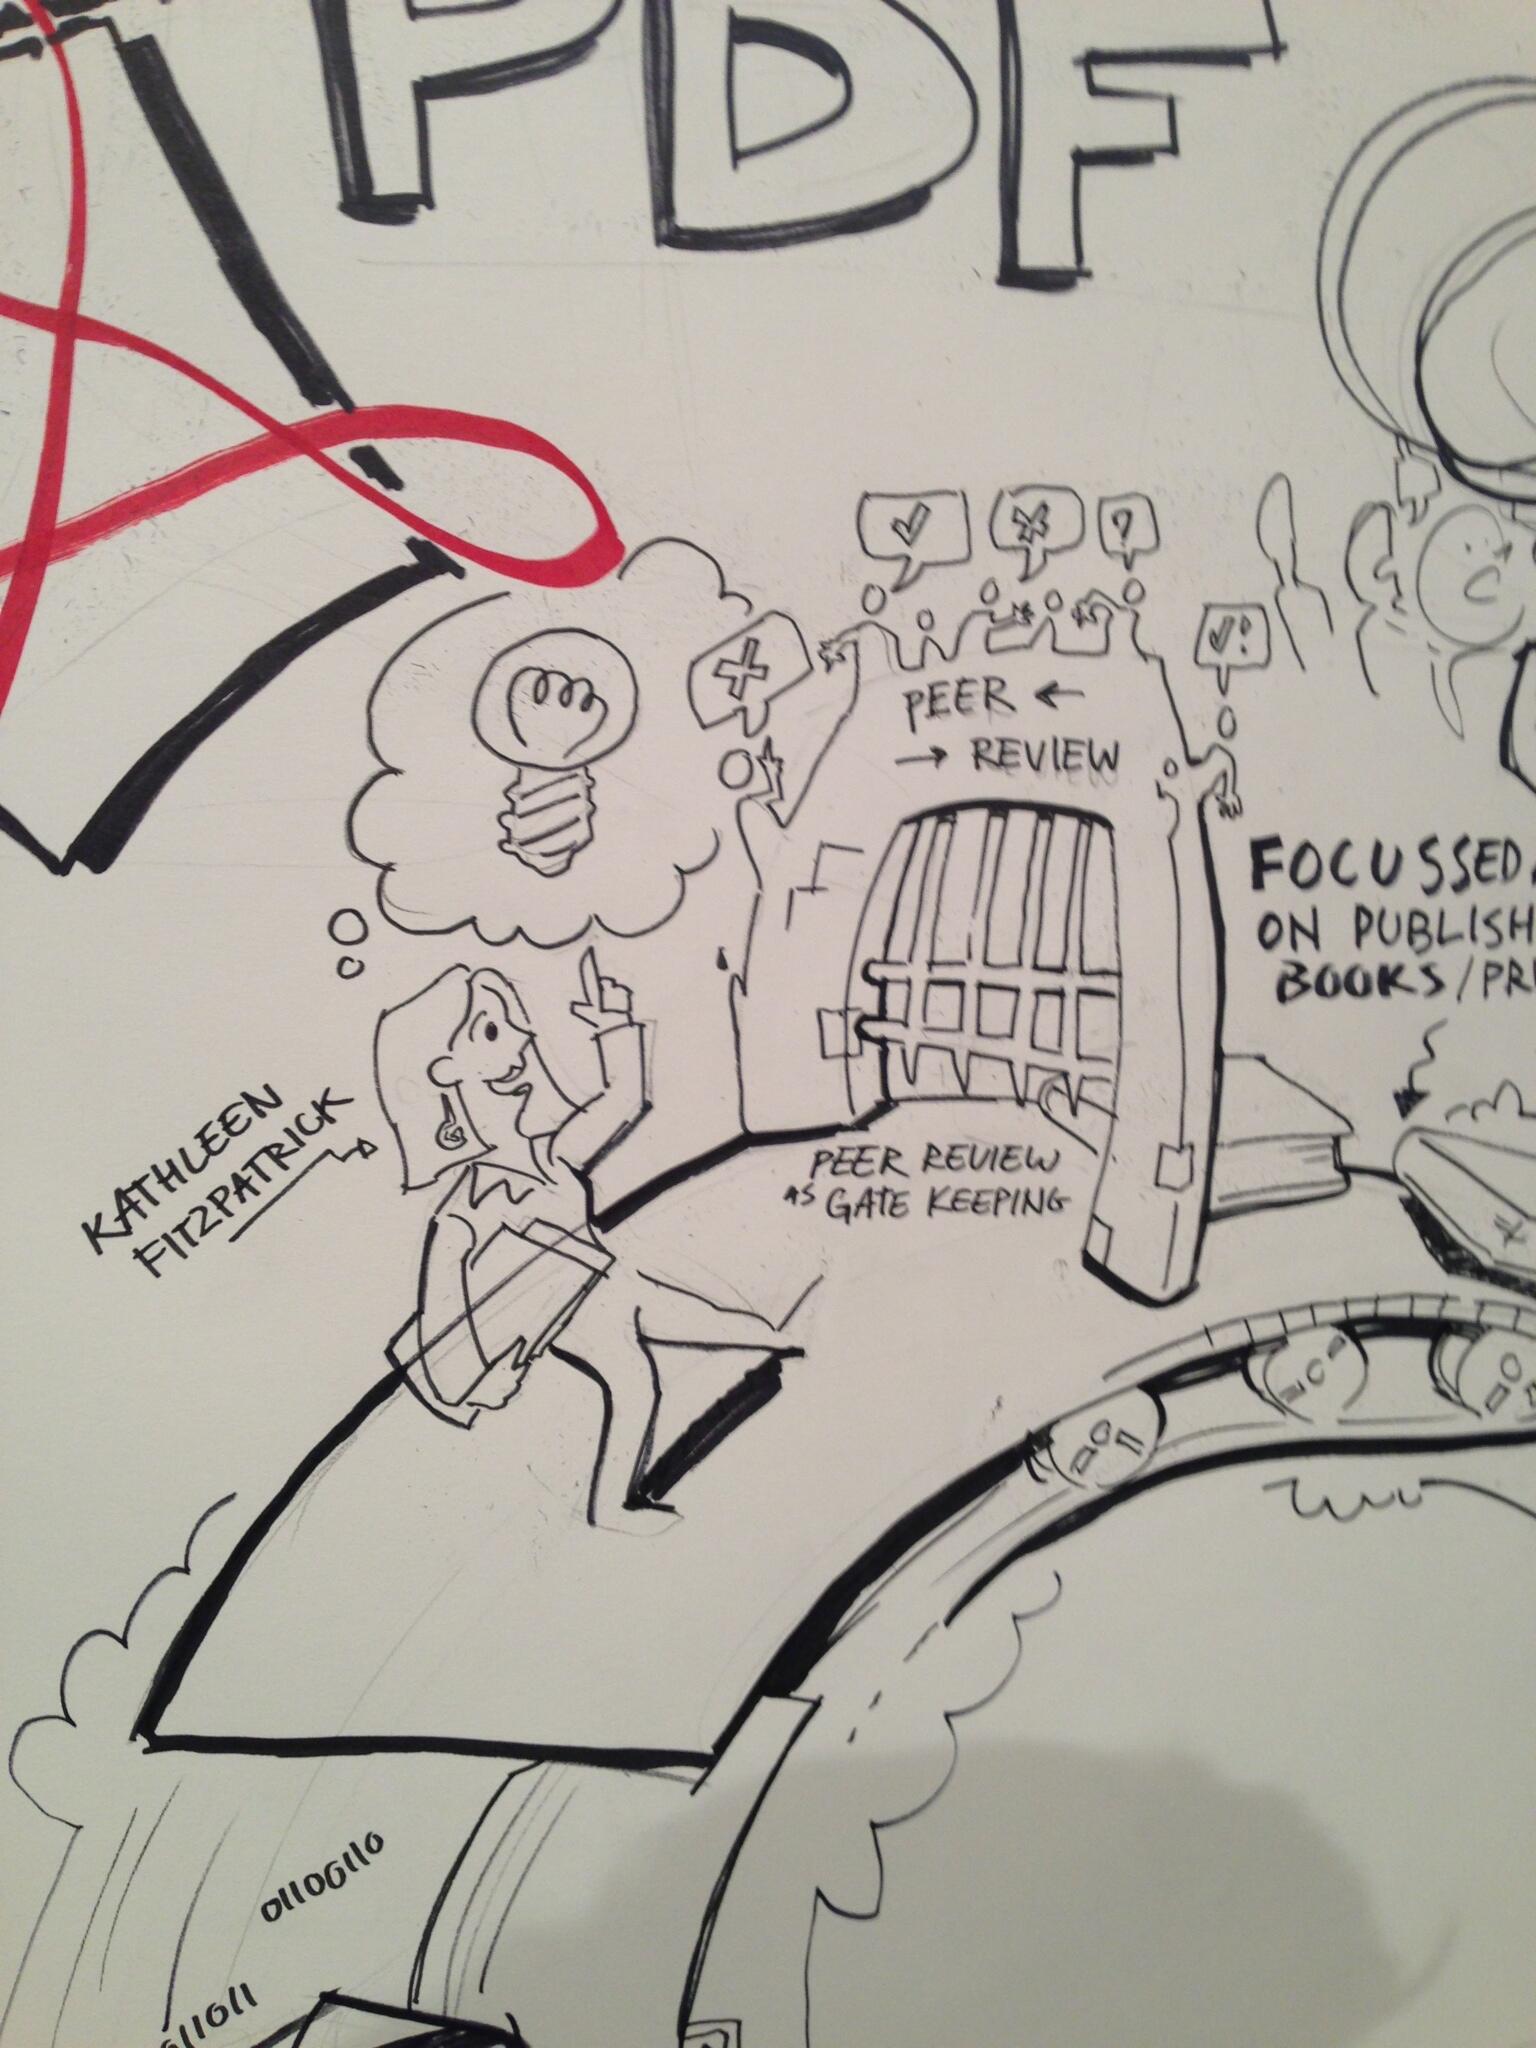 PDF
?
!
PEER ←
→ REVIEW
FOCUSSED
ON PUBLISH
BOOKS/PR
KATHLEEN
FITZPATRICK
PEER REVIEW
AS GATE KEEPING
01100110